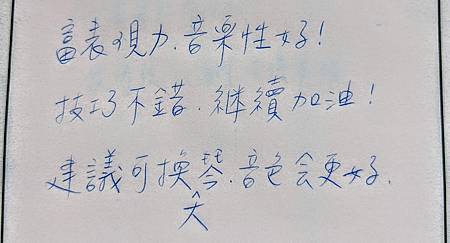 富表現力.音楽性好!
技巧不錯.繼續加油!
建議可換琴.音色会更好.
大